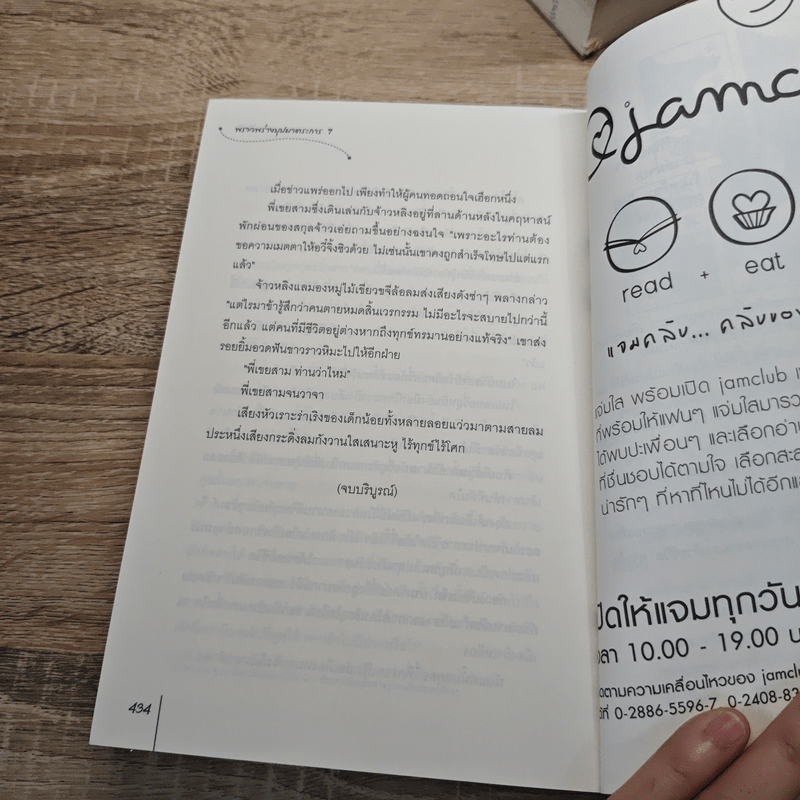 พราวพร่างบุปผาตระการ ๆ
เมื่อข่าวแพร่ออกไป เพียงทำให้ผู้คนทอดถอนใจเฮือกหนึ่ง
พี่เขยสามซึ่งเดินเล่นกับจ้าวหลิงอยู่ที่ลานด้านหลังในคฤหาสน์
พักผ่อนของสกุลจ้าวเอ่ยถามขึ้นอย่างฉงนใจ "เพราะอะไรท่านต้อง
ขอความเมตตาให้อวี้จิ้งชิวด้วย ไม่เช่นนั้นเขาคงถูกสำเร็จโทษไปแต่แรก
แล้ว"
จ้าวหลิงแลมองหมู่ไม้เขียวขจีล้อลมส่งเสียงดังซ่าๆ พลางกล่าว
"แต่ไรมาข้ารู้สึกว่าคนตายหมดสิ้นเวรกรรม ไม่มีอะไรจะสบายไปกว่านี้
อีกแล้ว แต่คนที่มีชีวิตอยู่ต่างหากถึงทุกข์ทรมานอย่างแท้จริง" เขาส่ง
รอยยิ้มอวดฟันขาวราวหิมะไปให้อีกฝ่าย
"พี่เขยสาม ท่านว่าไหม"
พี่เขยสามจนวาจา
เสียงหัวเราะร่าเริงของเด็กน้อยทั้งหลายลอยแว่วมาตามสายลม
ประหนึ่งเสียงกระดิ่งลมกังวานใสเสนาะหู ไร้ทุกข์ไร้โศก
(จบบริบูรณ์)
434
jamc
read + eat
แจมคลับ... คลับของ
แจ่มใส พร้อมเปิด jamclub
ที่พร้อมให้แฟนๆ แจ่มใสมารว
ได้พบปะเพื่อนๆ และเลือกอ่า
ที่ชื่นชอบได้ตามใจ เลือกสะส
น่ารักๆ ที่หาที่ไหนไม่ได้อีกแ
ปิดให้แจมทุกวัน
วลา 10.00 - 19.00 น
ดตามความเคลื่อนไหวของ jamclu
ได้ที่ 0-2886-5596-7, 0-2408-83